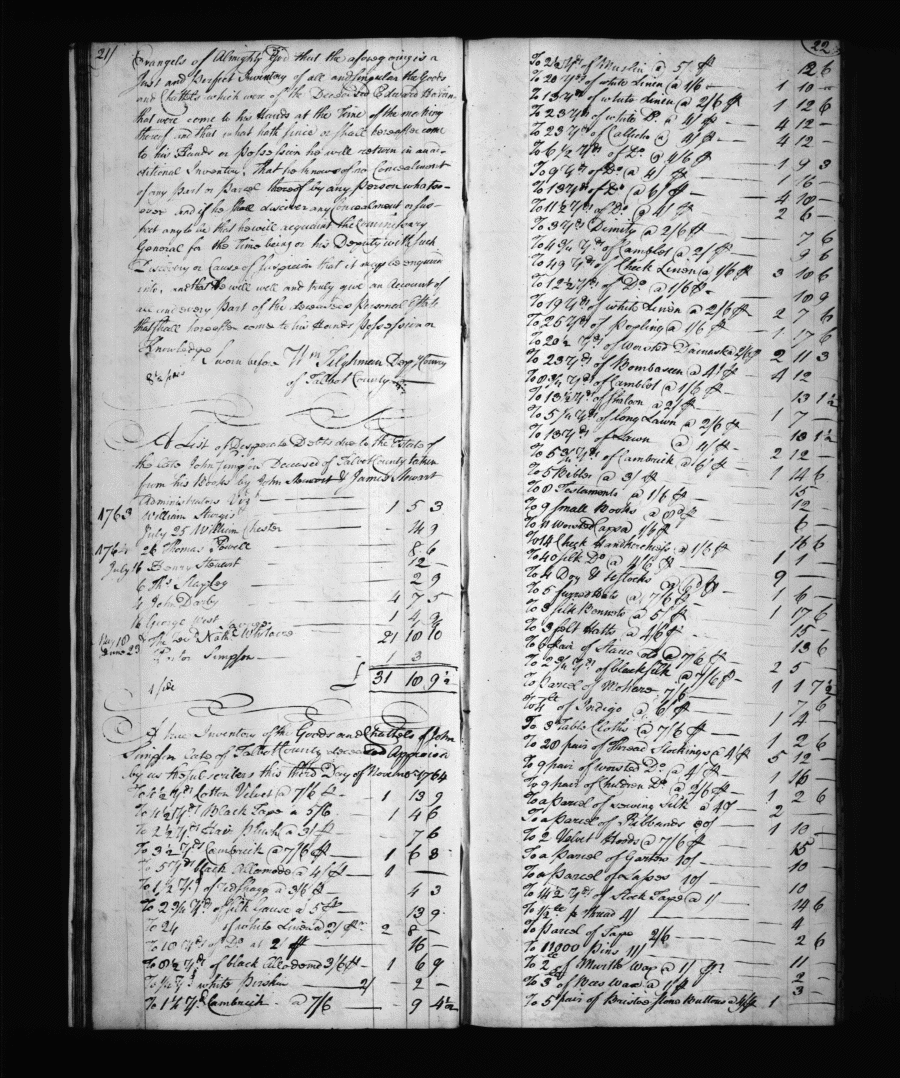 21
Evangels of Almighty God that the aforegoing is a
Just and Perfect Inventory of all and Singular the Goods
and Chattels which were of the Deceased Edward
that were come to his Hands at the Time of the making
thereof and that what hath since or shall hereafter come
to his Hands or Possession he will return in an ad=
=ditional Inventory. That he knows of no Concealment
of any Part or Parcel thereof by any Person whatso=
=ever and if he shall discover any Concealment or Sus=
pect any to be that he will acquaint the Commissary
General for the Time being or his Deputy with such
Discovery or Cause of Suspicion that it may be enquired
into, and that he will well and truly give an Account of
all and every Part of the deceaseds Personal Estate
that shall hereafter come to his Hands Possession or
Knowledge
Sworn before Wm Tilghman Dep Comry
of Talbot County
A List of Desperate Debts due to the Estate of
the late John Simpson Deceased of Talbot County taken
from his Books by John Stewart & James Stewart
Administrators Vizt
1763 William Sturgis 1 5 3
July 25 William Chester 14 9
1764 24 Thomas Powell 8 6
July 16 Stewart 12
6 Thos 2 9
4 John Darby 4 7 5
16 George West 1 4
The Revd Nathl Whitaere 21 10 10
June 23 Simpson 1 3
£ 31 10 9½
1 side
A true Inventory of the Goods and Chattels of John
Simpson late of Talbot County deceased Appraised
by us the Subscribers this third Day of Novemr 1764
Yds Cotton Velvet @ 7/6 1 13 9
Black Tape a 5/6 1 4 6
To 2½ Yds Hair Plush @ 3/ 7 6
To 3½ Yds Cambrick @ 7/6 1 6 3
To 5 Yds black Allamode @ 4/ 1
To 1½ Yds of @ 3/6 4 3
To 2¾ Yds of Silk Gause a 5/ 13 9
To 24 of white Linen @ 2/ 2 8
To 10 Yds of Do at 2 16
To 8½ Yds of black Allamode 3/6 1 6 9
To ½ Yd white Persian 2/ 2
To 1½ Yd Cambrick @ 7/6 9 4½
22
To 2½ Yds of Muslin @ 5/ 12 6
To 20 Yds of white Linen @ 1/6 1 10
To 13 Yds of white Linen @ 2/6 1 12 6
To 23 Yds of white Do @ 4/ 4 12
To 23 Yds of Callicho @ 4/ 4 12
To 6½ Yds of Do @ 4/6 1 9 3
To 9 Yds of Do @ 4/ 1 16
To 15 Yds of Do @ 6/ 4 10
To 11½ Yds of Do @ 4/ 2 6
To 3 Yds Dimity @ 2/6 7 6
To 4¾ Yds of Camblet @ 2/ 9 6
To 47 Yds of Check Linen @ 1/6 3 10 6
To 12½ Yds of Do @ 1/6 18 9
To 19 Yds of white Linen @ 2/6 2 7 6
To 25 Yds of Poplins @ 1/6 1 17 6
To 20½ Yds of Worsted Damask @ 2/6 2 11 3
To 23 Yds of Bombaseen @ 4/ 4 12
To 8¾ Yds of Camblet @ 1/6 13 1½
To 13½ Yds of Shaloon @ 2/ 1 7
To 5¼ Yds of long Lawn @ 2/6 13 1½
To 13 Yds of Lawn @ 4/ 2 12
To 5¾ Yds of Cambrick @ 6/ 1 14 6
To 5 Bibles @ 3/ 15
To 8 Testaments @ 1/6 12
To 9 Small Books @ 8d 6
To 11 Worsted Caps @ 1/6 16 6
To 14 Check Handkerchiefs @ 1/6 1 1
To 40 Silk Do @ 4/6 9
To 4 Dog 1 6
To 5 @ 7/6 1 17 6
To 3 Silk Bonnets @ 5/ 15
To 3 Felt Hatts @ 4/6 13 6
To 6 Pair of @ 7/6 2 5
Yds of black Silk @ 7/6 1 1 7½
To Parcel of Mohare 7/6 7 6
To 4 of Indigo @ 6/ 1 4
To 3 Table Cloths @ 7/6 1 2 6
To 28 pair of Thread Stockings @ 4/ 5 12
To 9 pair of worsted Do @ 4/ 1 16
To 9 pair of Children Do @ 2/6 1 2 6
To a Parcel of Sewing Silk @ 40/ 2
To a Parcel of Ribbands 30/ 1 10
To 2 Velvet Hoods @ 7/6 15
To a Parcel of Garters 10/ 10
To a Parcel of Lapes 10/ 10
To 14½ Yds of Stock Tape @ 1/ 14 6
To ½ lb Thread 4/ 4
To Parcel of Tape 2/6 2 6
To 11000 Pins 11/ 11
To 2 of Murtle Wax @ 1/ 2
To 3 of Bees Wax @ 1/ 3
To 5 pair of Bristol Stone Buttons @ 4/ 1